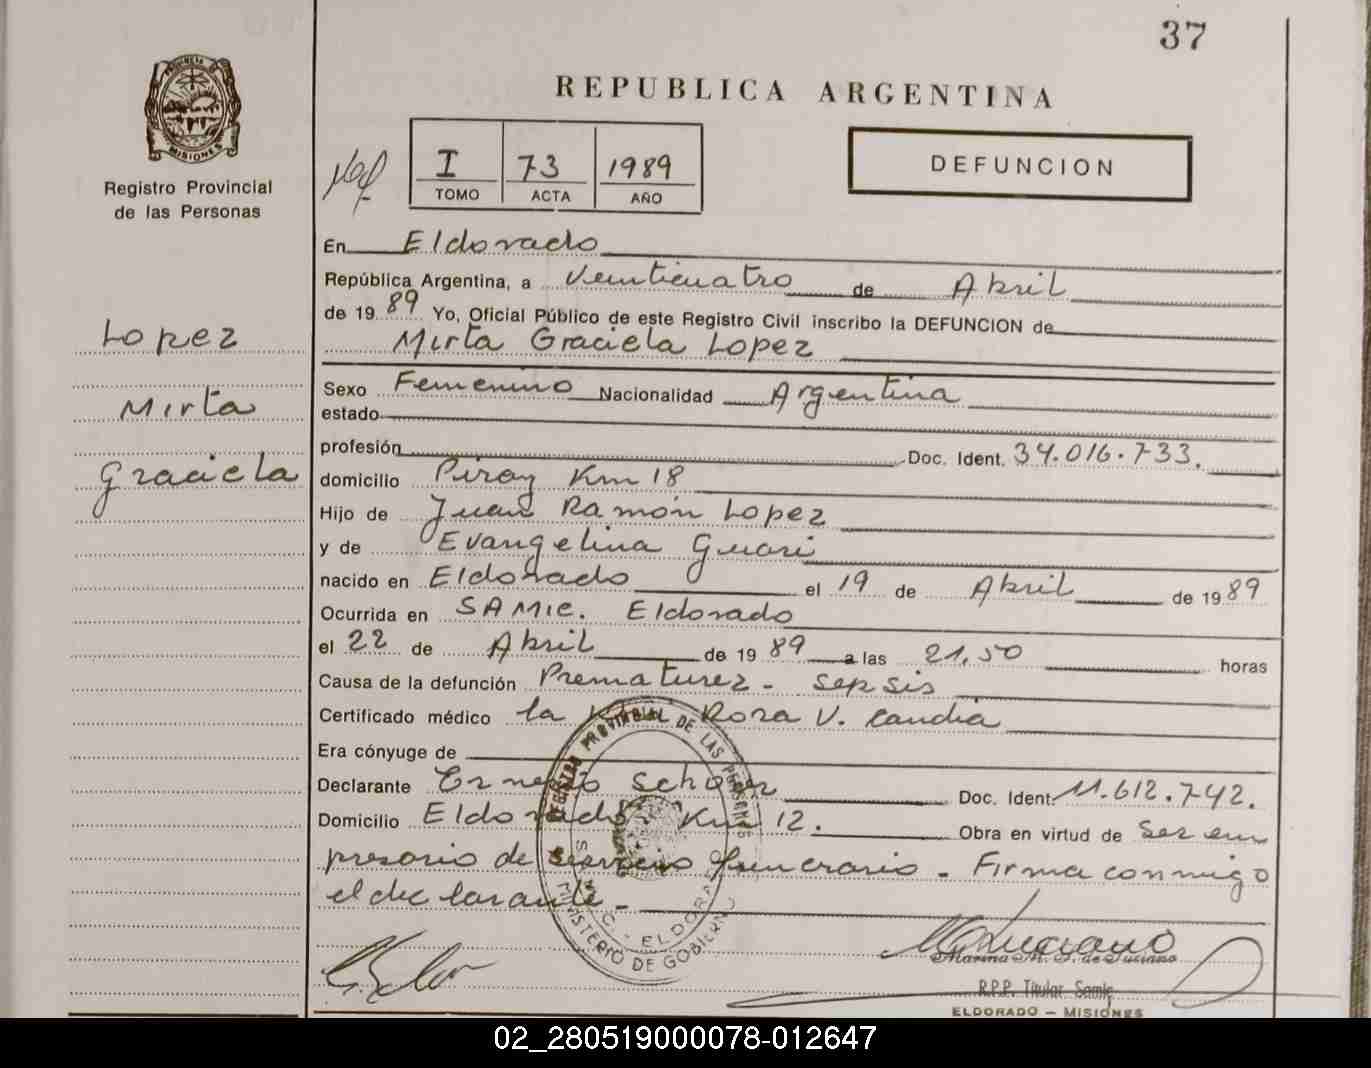 37
PROVINCIA DE
MISIONES
Registro Provincial
de las Personas
REPUBLICA ARGENTINA
I 73 1989
TOMO ACTA AÑO
DEFUNCION
Lopez
Mirta
Graciela
En Eldorado
República Argentina, a Veinticuatro de Abril
de 19 89 Yo, Oficial Público de este Registro Civil inscribo la DEFUNCION de
Mirta Graciela Lopez
Sexo Femenino Nacionalidad Argentina
estado
profesión Doc. Ident. 34.016.733.
domicilio Piray Km 18
Hijo de Juan Ramón Lopez
y de Evangelina Guari
nacido en Eldorado el 19 de Abril de 19 89
Ocurrida en SAMIC. Eldorado
el 22 de Abril de 19 89 a las 21,50 horas
Causa de la defunción Prematurez - sepsis
Certificado médico la Rosa V. Candia
Era cónyuge de
Declarante Ernesto Doc. Ident. 11.612.742.
Domicilio Eldorado Km 12. Obra en virtud de Ser em
presario de servicio funerario - Firma conmigo
el declarante -
REGISTRO PROVINCIAL DE LAS PERSONAS
S.A.M.I.C. - ELDORADO
MINISTERIO DE GOBIERNO
Marina M. de Luciano
R.P.P. Titular Samic
ELDORADO - MISIONES
02_280519000078-012647